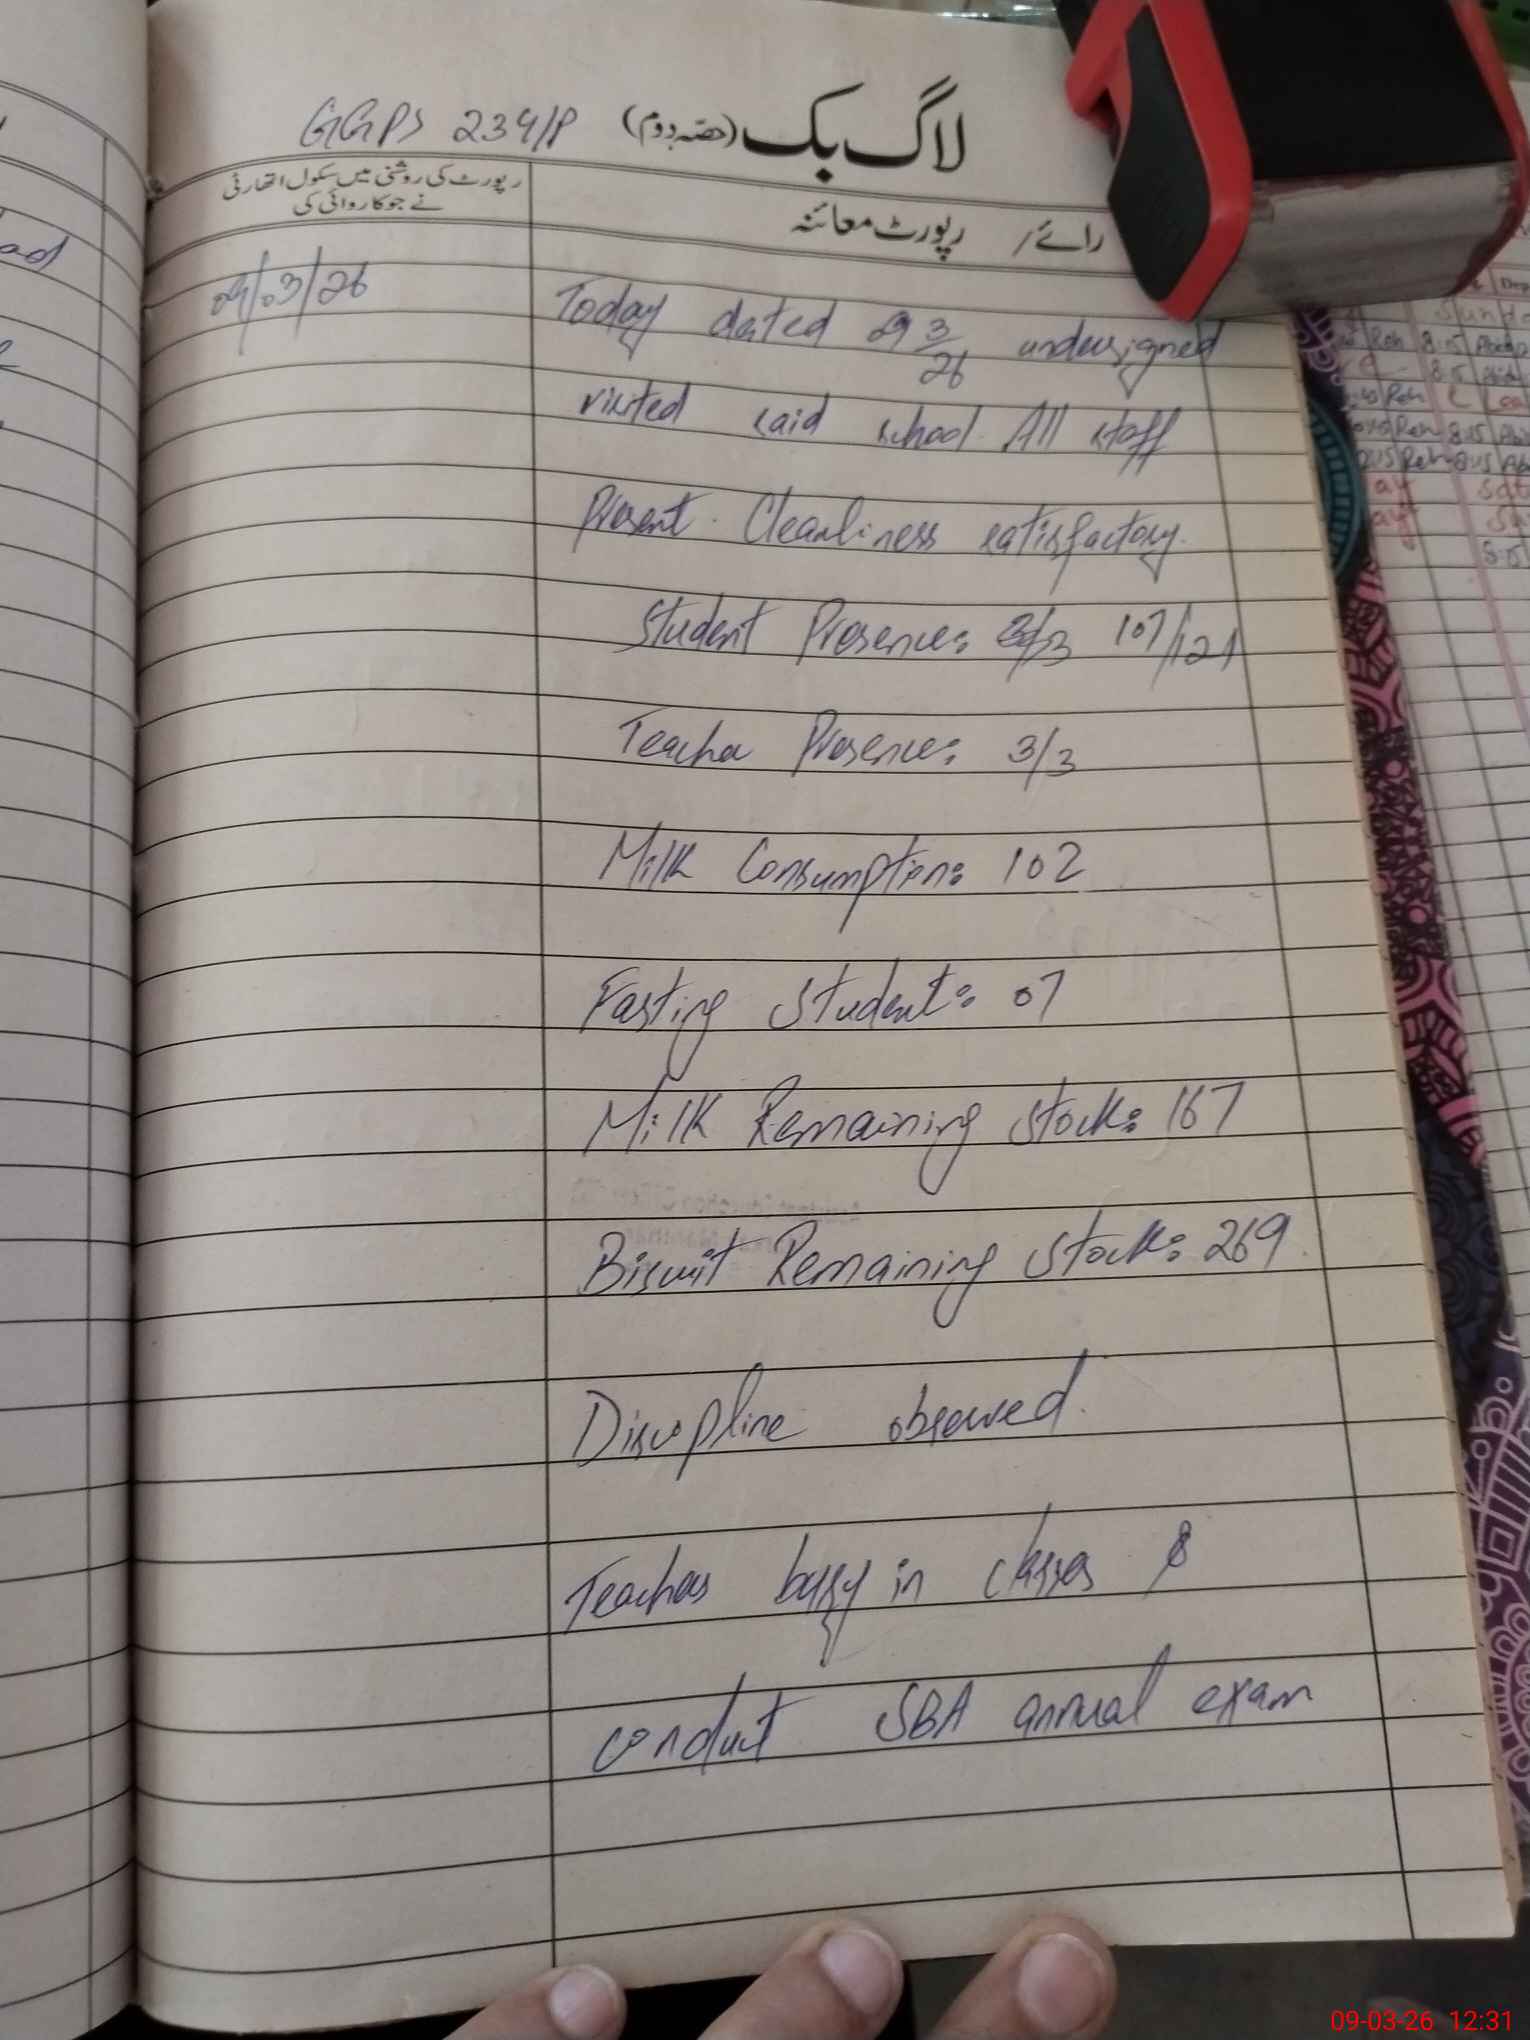 GGPS 234/P
لاگ بک (حصہ دوم)
رپورٹ کی روشنی میں سکول اتھارٹی
نے جو کاروائی کی
رائے / رپورٹ معائنہ
09/03/26
Today dated 09 3/26 undersigned
visited said school. All staff
Present. Cleanliness satisfactory.
Student Presence: 107/121
Teacher Presence: 3/3
Milk Consumption: 102
Fasting Student: 07
Milk Remaining Stock: 167
Biscuit Remaining Stock: 269
Discipline observed.
Teachers busy in classes &
conduct SBA annual exam
09-03-26 12:31